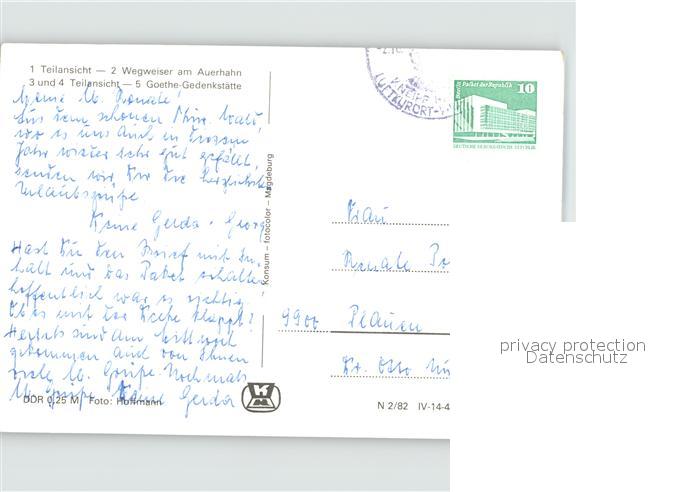 1 Teilansicht — 2 Wegweiser am Auerhahn
3 und 4 Teilansicht — 5 Goethe-Gedenkstätte
Meine lb. Renate!
Aus dem schönen Thür. Wald,
wo es uns auch in diesem
Jahr wieder sehr gut gefällt,
senden wir Dir die herzlichsten
Urlaubsgrüße
Deine Gerda. Georg
Hast Du den Brief mit In-
halt und das Paket erhalten
hoffentlich war es richtig
Ob es mit der klappt?
sind am
gekommen und von Ihnen
viele lb. Grüße Nochmals
lb. Grüße Deine Gerda
DDR 0,25 M Foto: Hoffmann
Konsum – fotocolor – Magdeburg
KNEIPP
LUFTKURORT
Berlin, Palast der Republik
10
DEUTSCHE DEMOKRATISCHE REPUBLIK
Frau
Renate
9900 Plauen
Dr. Otto
N 2/82 IV-14-4
privacy protection
Datenschutz